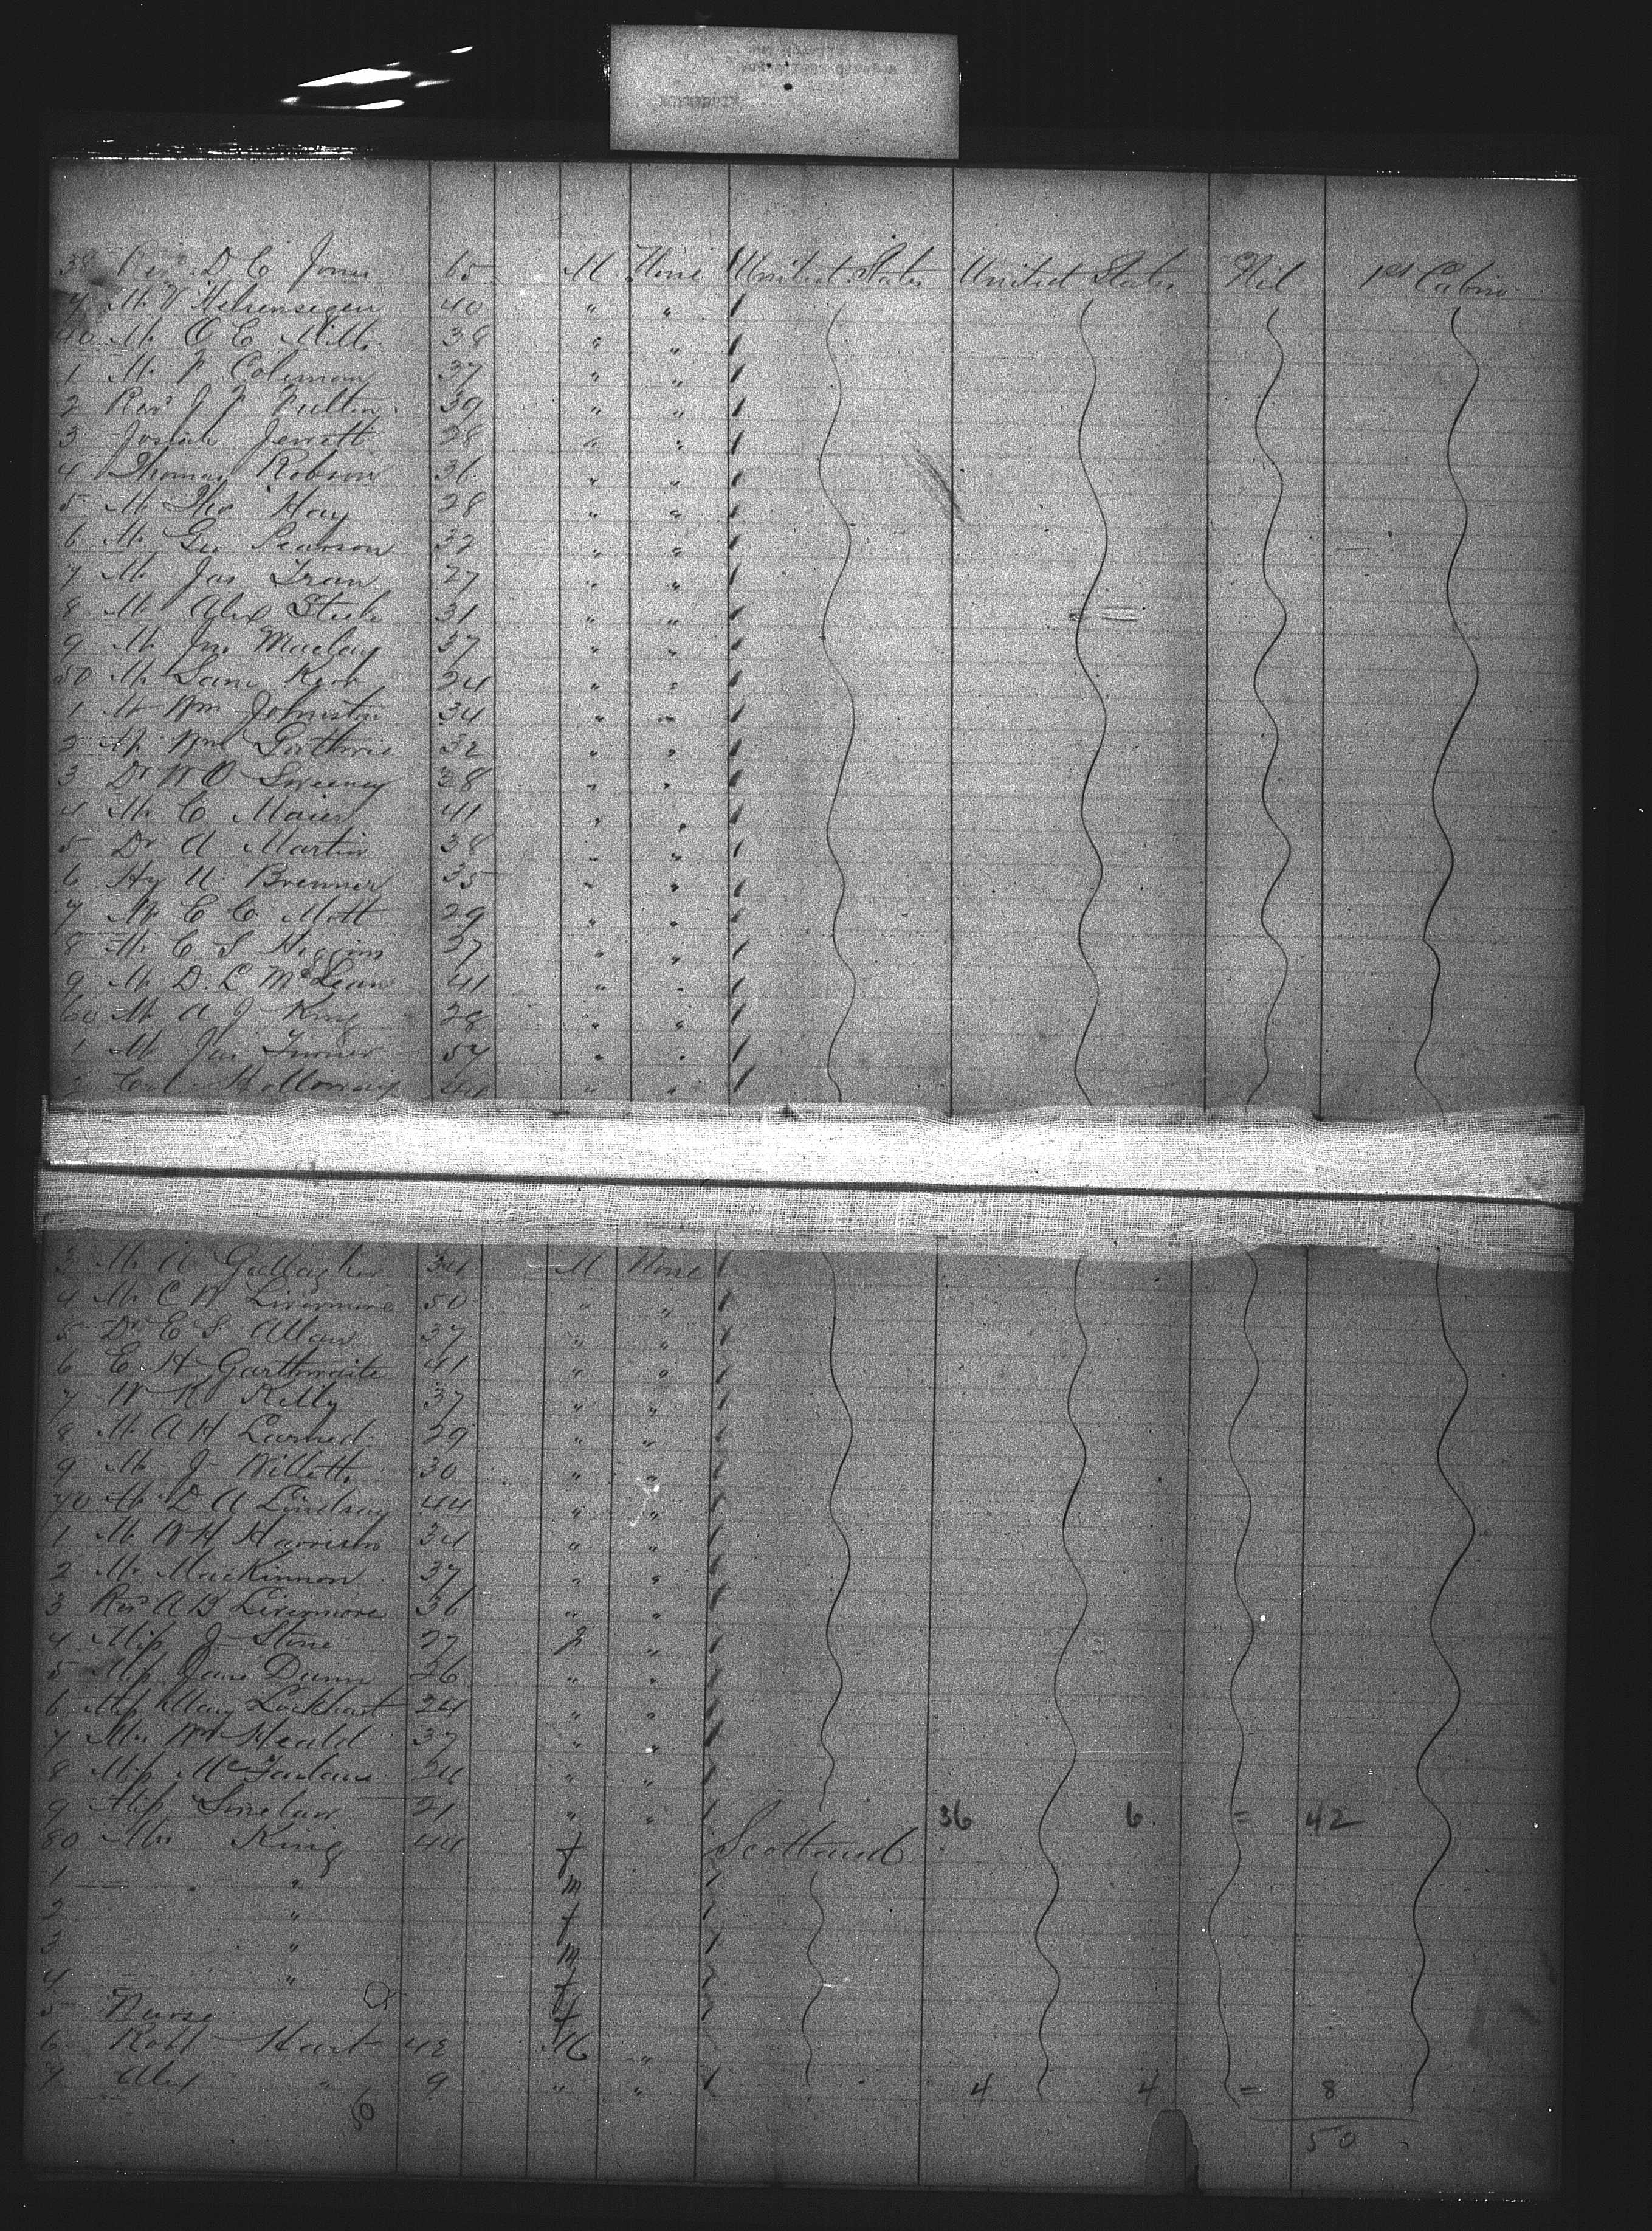 38 Revd. D. C. Jones 65 M None United States United States Nil 1st Cabin
9 Mr V 40 " "
40 Mr O C Mills 38 " "
1 Mr F Coleman 37 " "
2 Revd J F Fulton 39 " "
3 Josiah Jewett 28 " "
4 Thomas Robson 36 " "
5 Mr Thos Hay 28 " "
6 Mr Geo Pearson 32 " "
7 Mr Jas 27 " "
8 Mr Alex Steele 31 " "
9 Mr Jno Maclay 37 " "
50 Mr Saml Kerr 24 " "
1 Mr Wm Johnston 34 " "
2 Mr Wm Guthrie 32 " "
3 Dr W O Sweeney 38 " "
4 Mr C Maier 41 " "
5 Dr A Martin 38 " "
6 Hy U Brenner 35 " "
7 Mr E C Mott 29 " "
8 Mr C S Higgins 27 " "
9 Mr D. L McLean 41 " "
60 Mr A J King 28 " "
1 Mr Jas Turner 57 " "
2 Col Holloway " "
3 Mr A Gallagher 34 M None
4 Mr C W Livermore 50 " "
5 Dr E S Allan 37 " "
6 E H Garthwaite 41 " "
7 W K Kelly 37 " "
8 Mr A H Larned 29 " "
9 Mr J Willetts 30 " "
70 Mr D A Lindsay 44 " "
1 Mr W H Harrison 34 " "
2 Mr MacKinnon 37 " "
3 Revd A B Livermore 36 " "
4 Miss J Stone 27 F "
5 Miss Jane Dunn 26 " "
6 Miss Mary Lockhart 24 " "
7 Mrs Wm Heald 37 " "
8 Miss McFarlane 24 " "
9 Miss Sinclair 21 " " 36 6 = 42
80 Mrs King 44 f Scotland
1 " m
2 " f
3 " m
4 " f
5 Nurse f
6 Robt Hart 48 M "
7 Alex " 9 " " 4 4 = 8
50 50